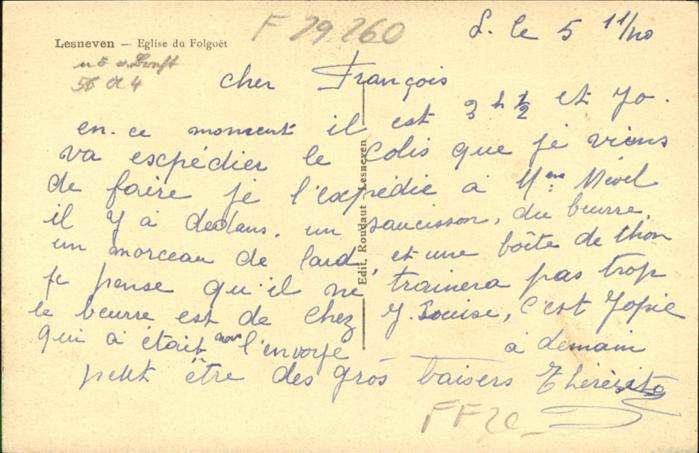 Lesneven — Eglise du Folgoët
F 29.260
L. le 5 11/40
cher François
en. ce moment il est 3 h ½ et Jo.
va expédier le colis que je viens
de faire je l'expédie à Mme Mével
il y à dedans, un saucisson, du beurre
un morceau de lard, et une boîte de thon
je pense qu'il ne trainera pas trop
le beurre est de chez J. Louise, c'est Josie
qui à était nous l'envoye
à demain
petit être des gros baisers Thérèsita
FF20
Edit. Roudaut - Lesneven